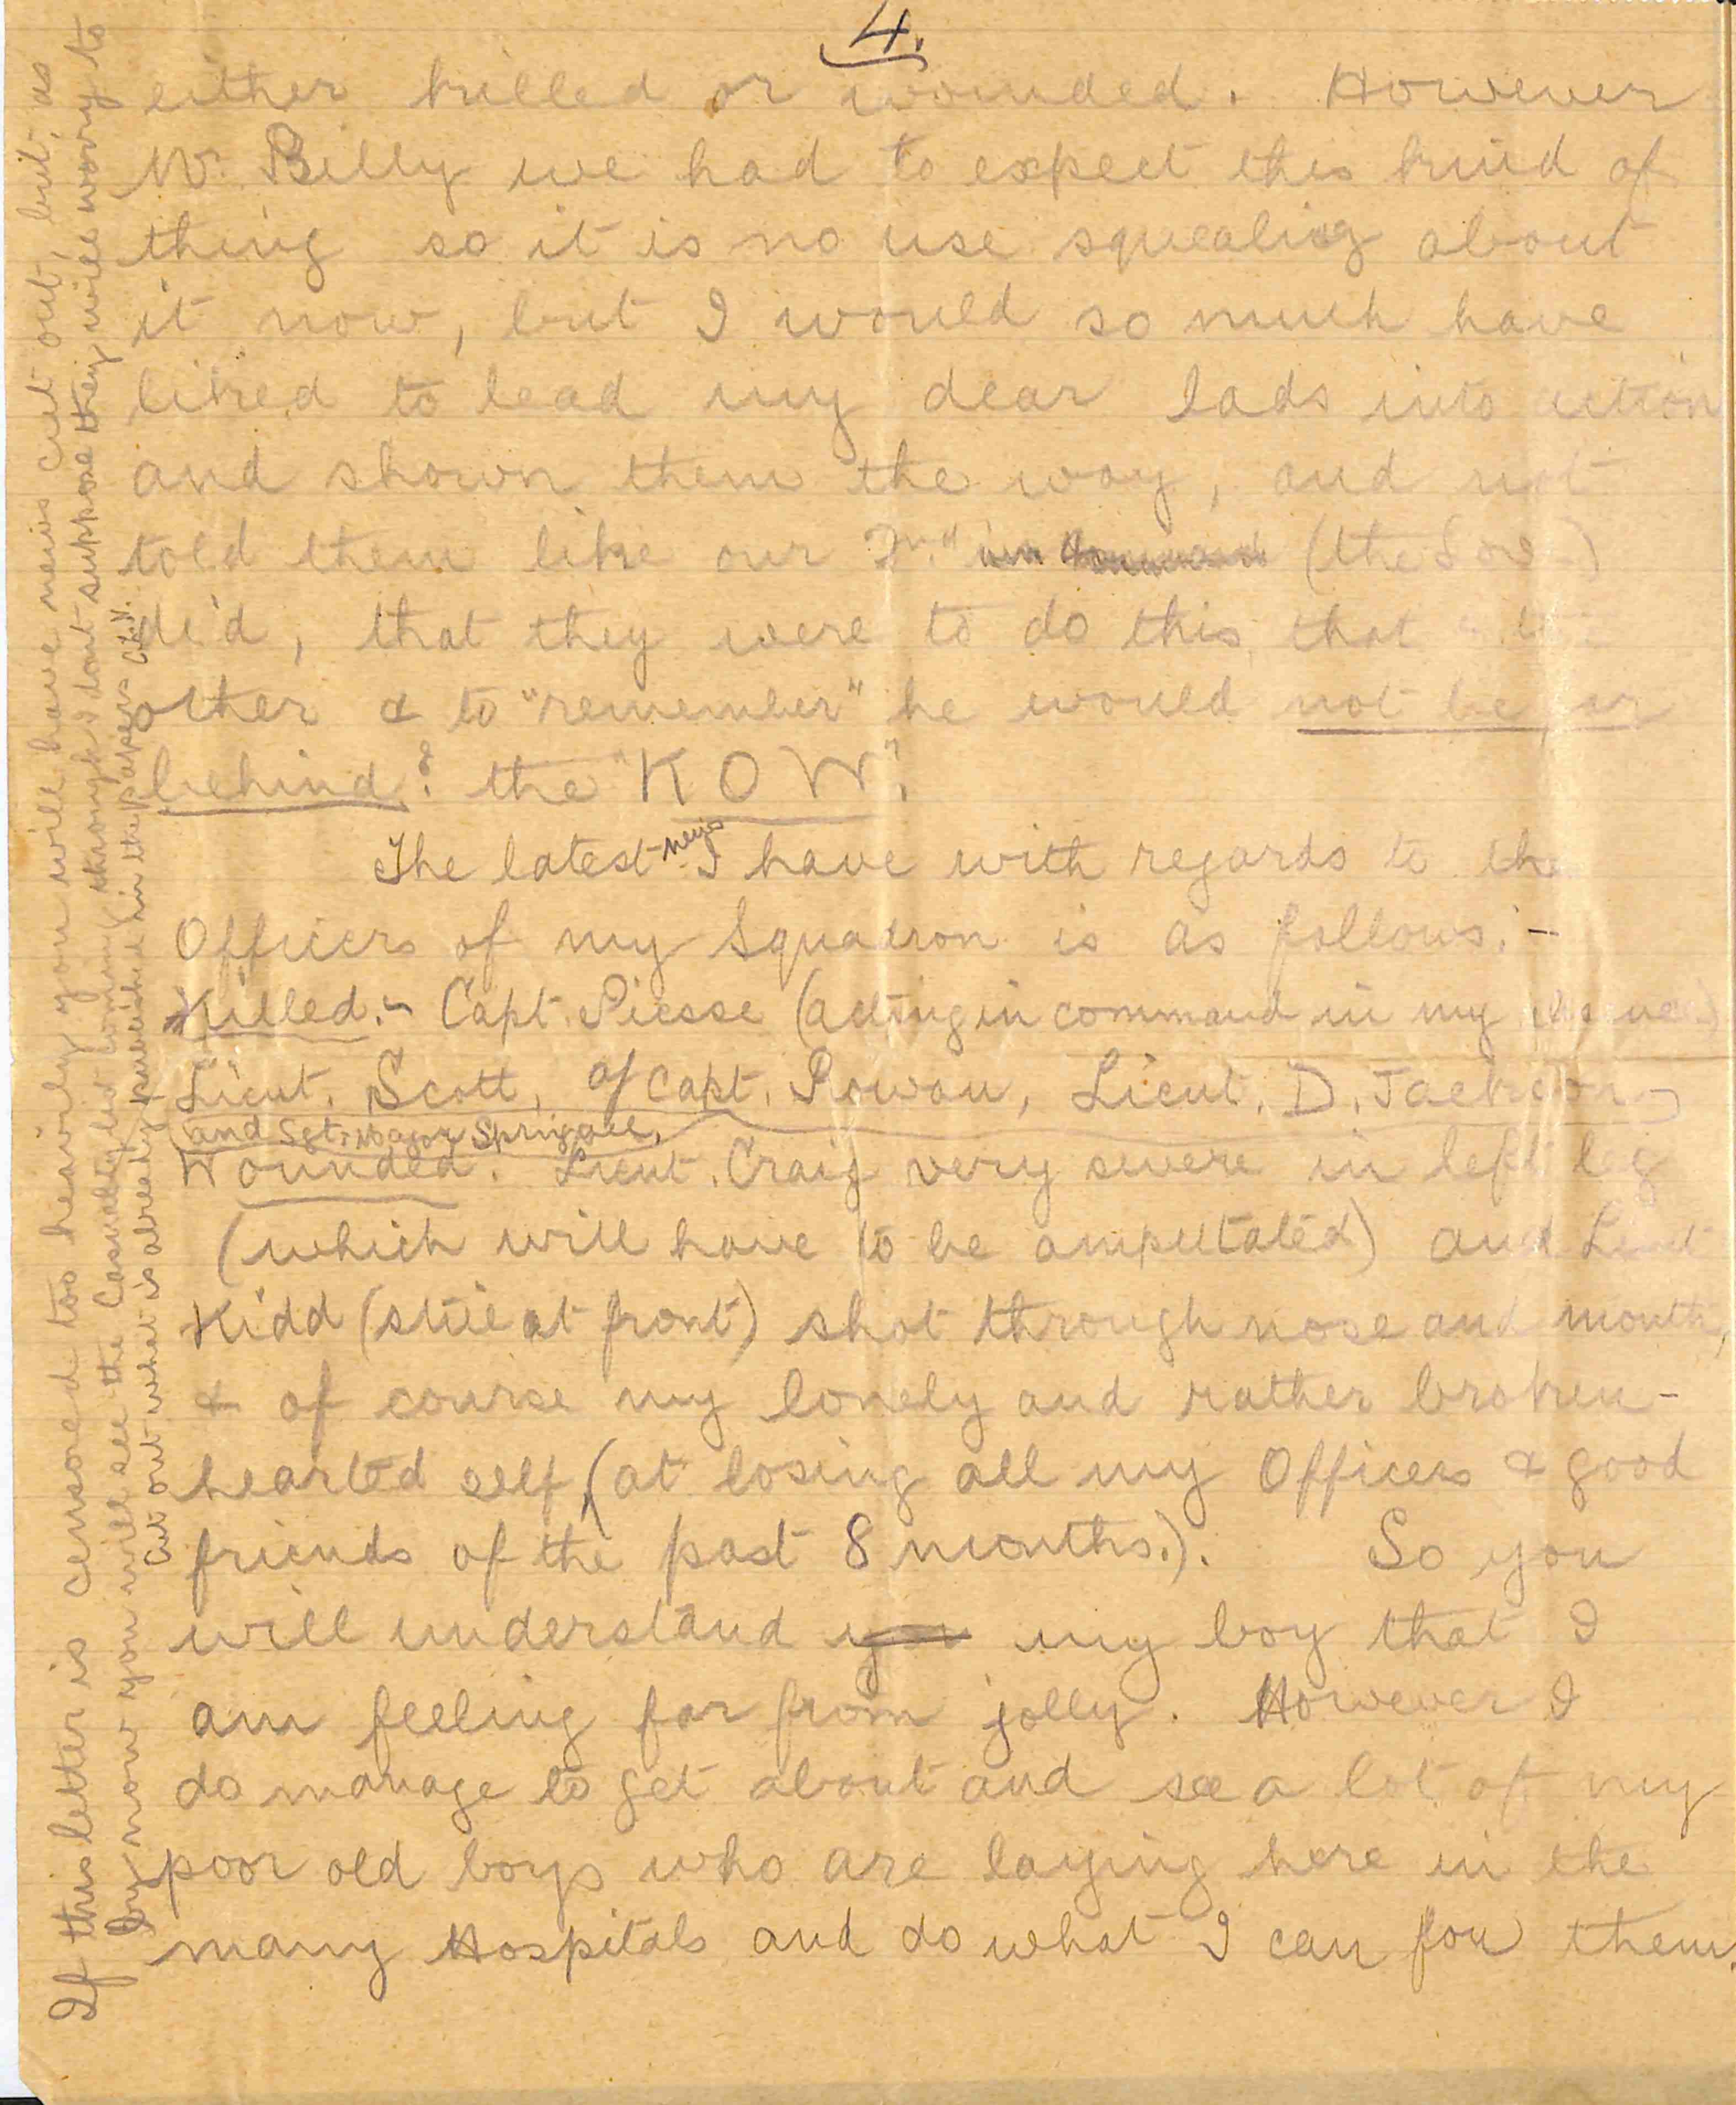 4.
either killed or wounded. However
Mr. Billy we had to expect this kind of
thing so it is no use squealing about
it now, but I would so much have
liked to lead my dear lads into action
and shown them the way, and not
told them like our 2nd in Command (the Sow)
did, that they were to do this, that
other & to "remember" he would not be far
behind? the "KOW".
The latest news I have with regards to the
Officers of my Squadron is as follows:-
Killed:- Capt. Piesse (acting in command in my absence)
Lieut. Scott, of Capt. Rowan, Lieut. D. Jackson,
and Sgt. Major Springall,
Wounded. Lieut. Craig very severe in left leg
(which will have to be amputated) and Lieut
Kidd (still at front) shot through nose and mouth,
& of course my lonely and rather broken-
hearted self, (at losing all my Officers & good
friends of the past 8 months.). So you
will understand you my boy that I
am feeling far from jolly. However I
do manage to get about and see a lot of my
poor old boys who are laying here in the
many Hospitals and do what I can for them.
If this letter is censored too heavily you will have news cut out, but, as
by now you will see the Casualty list coming through I dont suppose they will worry to
cut out what is already published in the papers